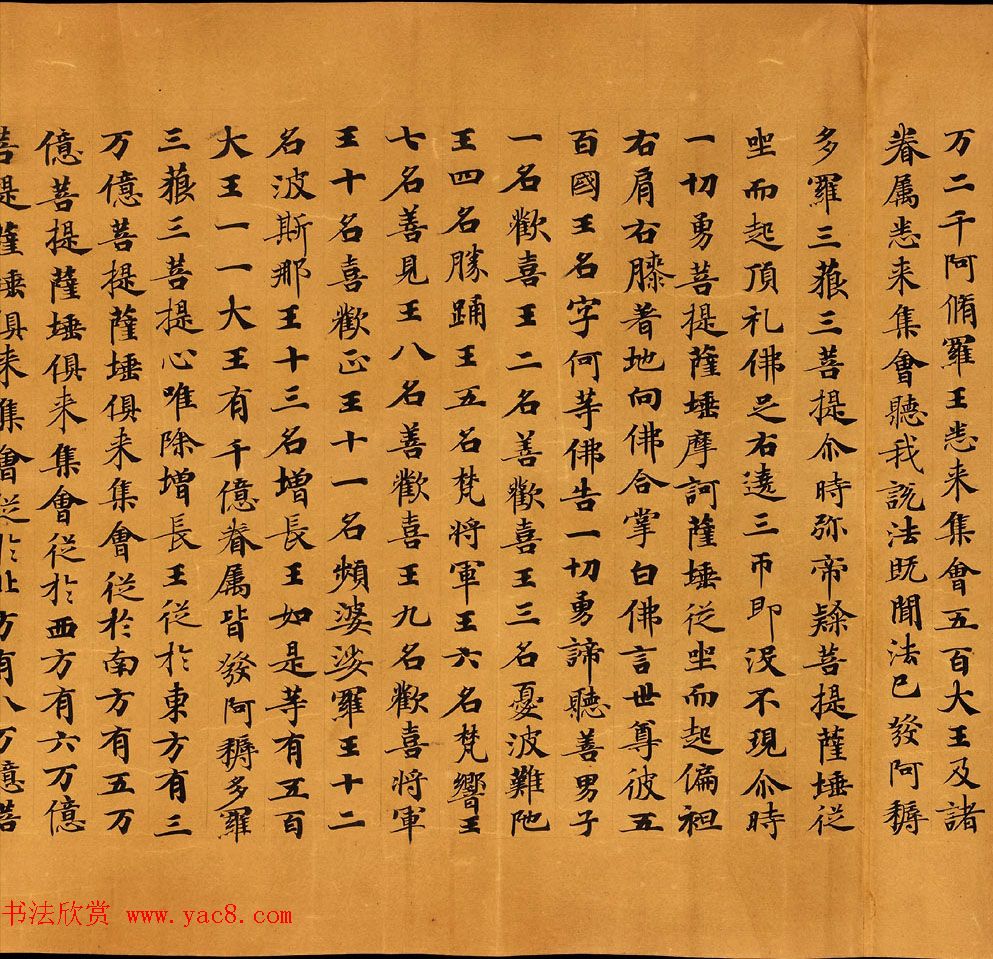 万二千阿脩羅王悉来集會五百大王及諸
眷属悉来集會聽我説法既聞法已發阿耨
多羅三藐三菩提尒時弥帝𨽻菩提薩埵従
坐而起頂礼佛足右遶三帀即没不現尒時
一切勇菩提薩埵摩訶薩埵従坐而起偏袒
右肩右膝著地向佛合掌白佛言世尊彼五
百國王名字何等佛告一切勇諦聽善男子
一名歡喜王二名善歡喜王三名憂波難陁
王四名勝踊王五名梵将軍王六名梵響王
七名善見王八名善歡喜王九名歡喜将軍
王十名喜歡正王十一名頻婆娑羅王十二
名波斯那王十三名增長王如是等有五百
大王一一大王有千億眷属皆發阿耨多羅
三藐三菩提心唯除增長王従於東方有三
万億菩提薩埵俱来集會従於南方有五万
億菩提薩埵俱来集會従於西方有六万億
菩提薩埵俱来集會従於北方有八万億菩
书法欣赏 www.yac8.com